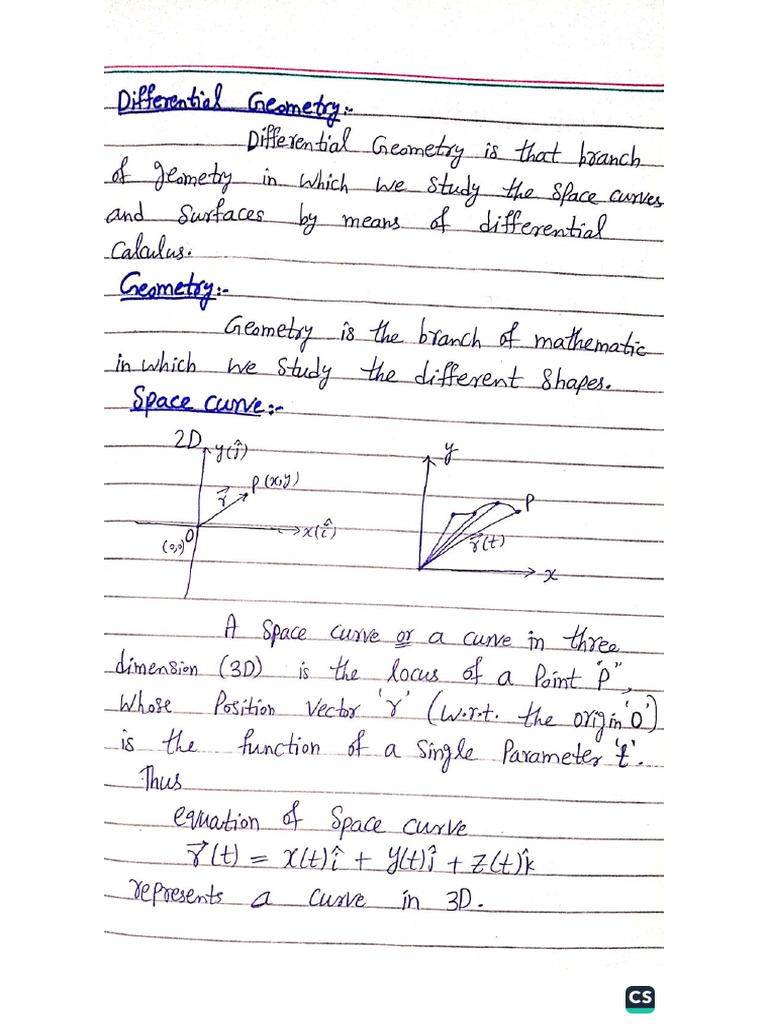 Differential Geometry:-
Differential Geometry is that branch
of geometry in which we study the space curves
and surfaces by means of differential
calculus.
Geometry:-
Geometry is the branch of mathematic
in which we study the different shapes.
Space curve:-
2D
y(ĵ)
P(x,y)
r⃗
x(î)
O
(0,0)
y
P
r⃗(t)
x
A space curve or a curve in three
dimension (3D) is the locus of a point "P",
whose position vector 'r' (w.r.t. the origin 'O')
is the function of a single parameter 't'.
Thus
equation of space curve
r⃗(t) = x(t)î + y(t)ĵ + z(t)k̂
represents a curve in 3D.
CS